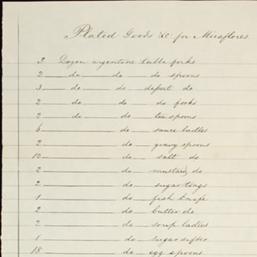 Plated Goods &c for Miraflores
3 Dozen argentine table forks
2 do do do spoons
3 do do desert do
2 do do do forks
2 do do tea spoons
6 do sauce ladles
2 do gravy spoons
12 do salt do
2 do mustard do
2 do sugar tongs
1 do fish knife
2 do butter do
2 do soup ladles
1 do sugar sifter
18 do egg spoons